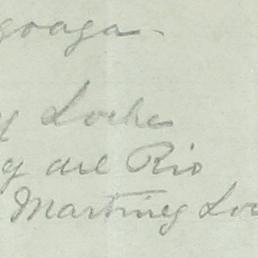 goaga.
y Loche
y del Rio
Martinez Lo